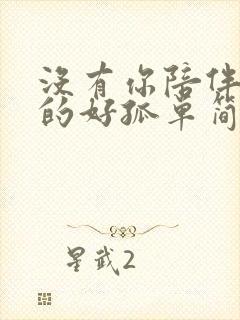 沒有你陪伴
的好孤單简
星武2